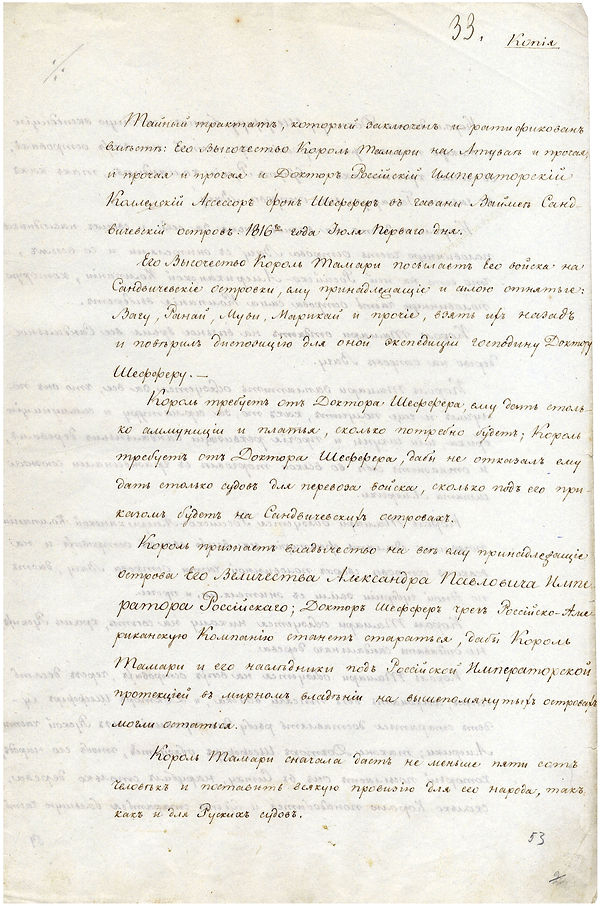 33.
Копія
Тайный трактатъ, который заключенъ и ратификованъ
вмѣстѣ: Его Высочество Король Тамари на Атуваѣ и прочая
и прочая и прочая и Докторъ Россійскій Императорскій
Коллежскій Ассессоръ фонъ Шефферъ въ гавани Ваимеи Санд-
вическій островъ. 1816го года Іюля Перваго дня.
Его Высочество Король Тамари посылаетъ Его войска на
Сандвичевскіе островки, ему принадлежащіе и силою отнятые:
Вагу, Ранай, Муви, Марикай и прочіе, взять ихъ назадъ
и повѣрилъ диспозицію для оной экспедиціи господину Доктору
Шефферу. —
Король требуетъ отъ Доктора Шеффера, ему дать столь-
ко аммуниціи и платья, сколько потребно будетъ; Король
требуетъ отъ Доктора Шеффера, дабы не отказалъ ему
дать столько судовъ для перевоза войска, сколько подъ его при-
казомъ будетъ на Сандвичевскихъ островахъ.
Король признаетъ владычество на всѣ ему принадлежащіе
острова Его Величества Александра Павловича Импе-
ратора Россійскаго; Докторъ Шефферъ чрезъ Россійско-Аме-
риканскую Компанію станетъ стараться, дабы Король
Тамари и его наслѣдники подъ Россійской Императорской
протекціей въ мирномъ владѣніи на вышепомянутыхъ островахъ
могли остаться.
Король Тамари сначала дастъ не меньше пяти сотъ
человѣкъ и поставитъ всякую провизію для его народа, такъ
какъ и для Рускихъ судовъ.
53